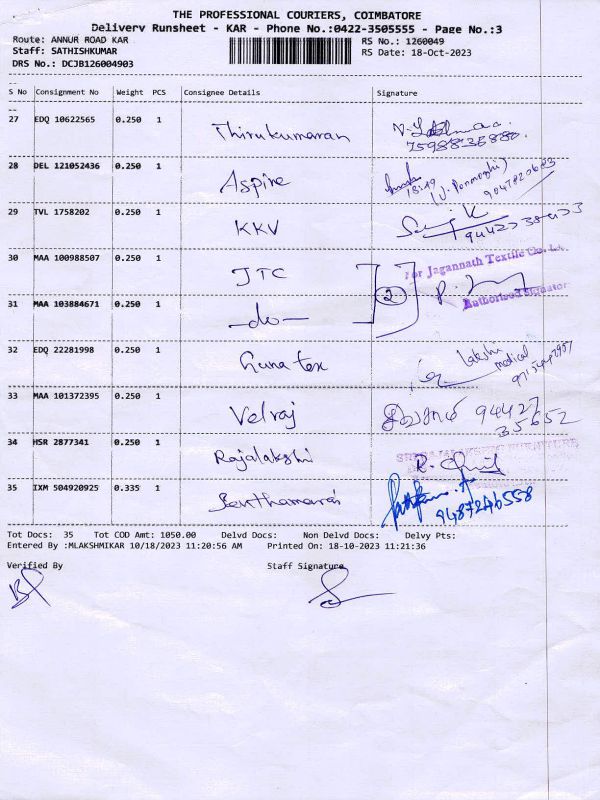 THE PROFESSIONAL COURIERS, COIMBATORE
Delivery Runsheet - KAR - Phone No.:0422-3505555 - Page No.:3
Route: ANNUR ROAD KAR RS No.: 1260049
Staff: SATHISHKUMAR RS Date: 18-Oct-2023
DRS No.: DCJB126004903
S No Consignment No Weight PCS Consignee Details Signature
27 EDQ 10622565 0.250 1 Thirukumaran
28 DEL 121052436 0.250 1 Aspire
18:40
29 TVL 1758202 0.250 1 KKV
30 MAA 100988507 0.250 1 JTC 2 For Jagannath Textile Co.
31 MAA 103884671 0.250 1 -do- Authorised Signatory
32 EDQ 22281998 0.250 1 Guna tex Lakshi medical
33 MAA 101372395 0.250 1 Velraj 94427
35652
34 HSR 2877341 0.250 1 Rajalakshi
35 IXM 504920925 0.335 1 9487246558
Tot Docs: 35 Tot COD Amt: 1050.00 Delvd Docs: Non Delvd Docs: Delvy Pts:
Entered By :MLAKSHMIKAR 10/18/2023 11:20:56 AM Printed On: 18-10-2023 11:21:36
Verified By Staff Signature